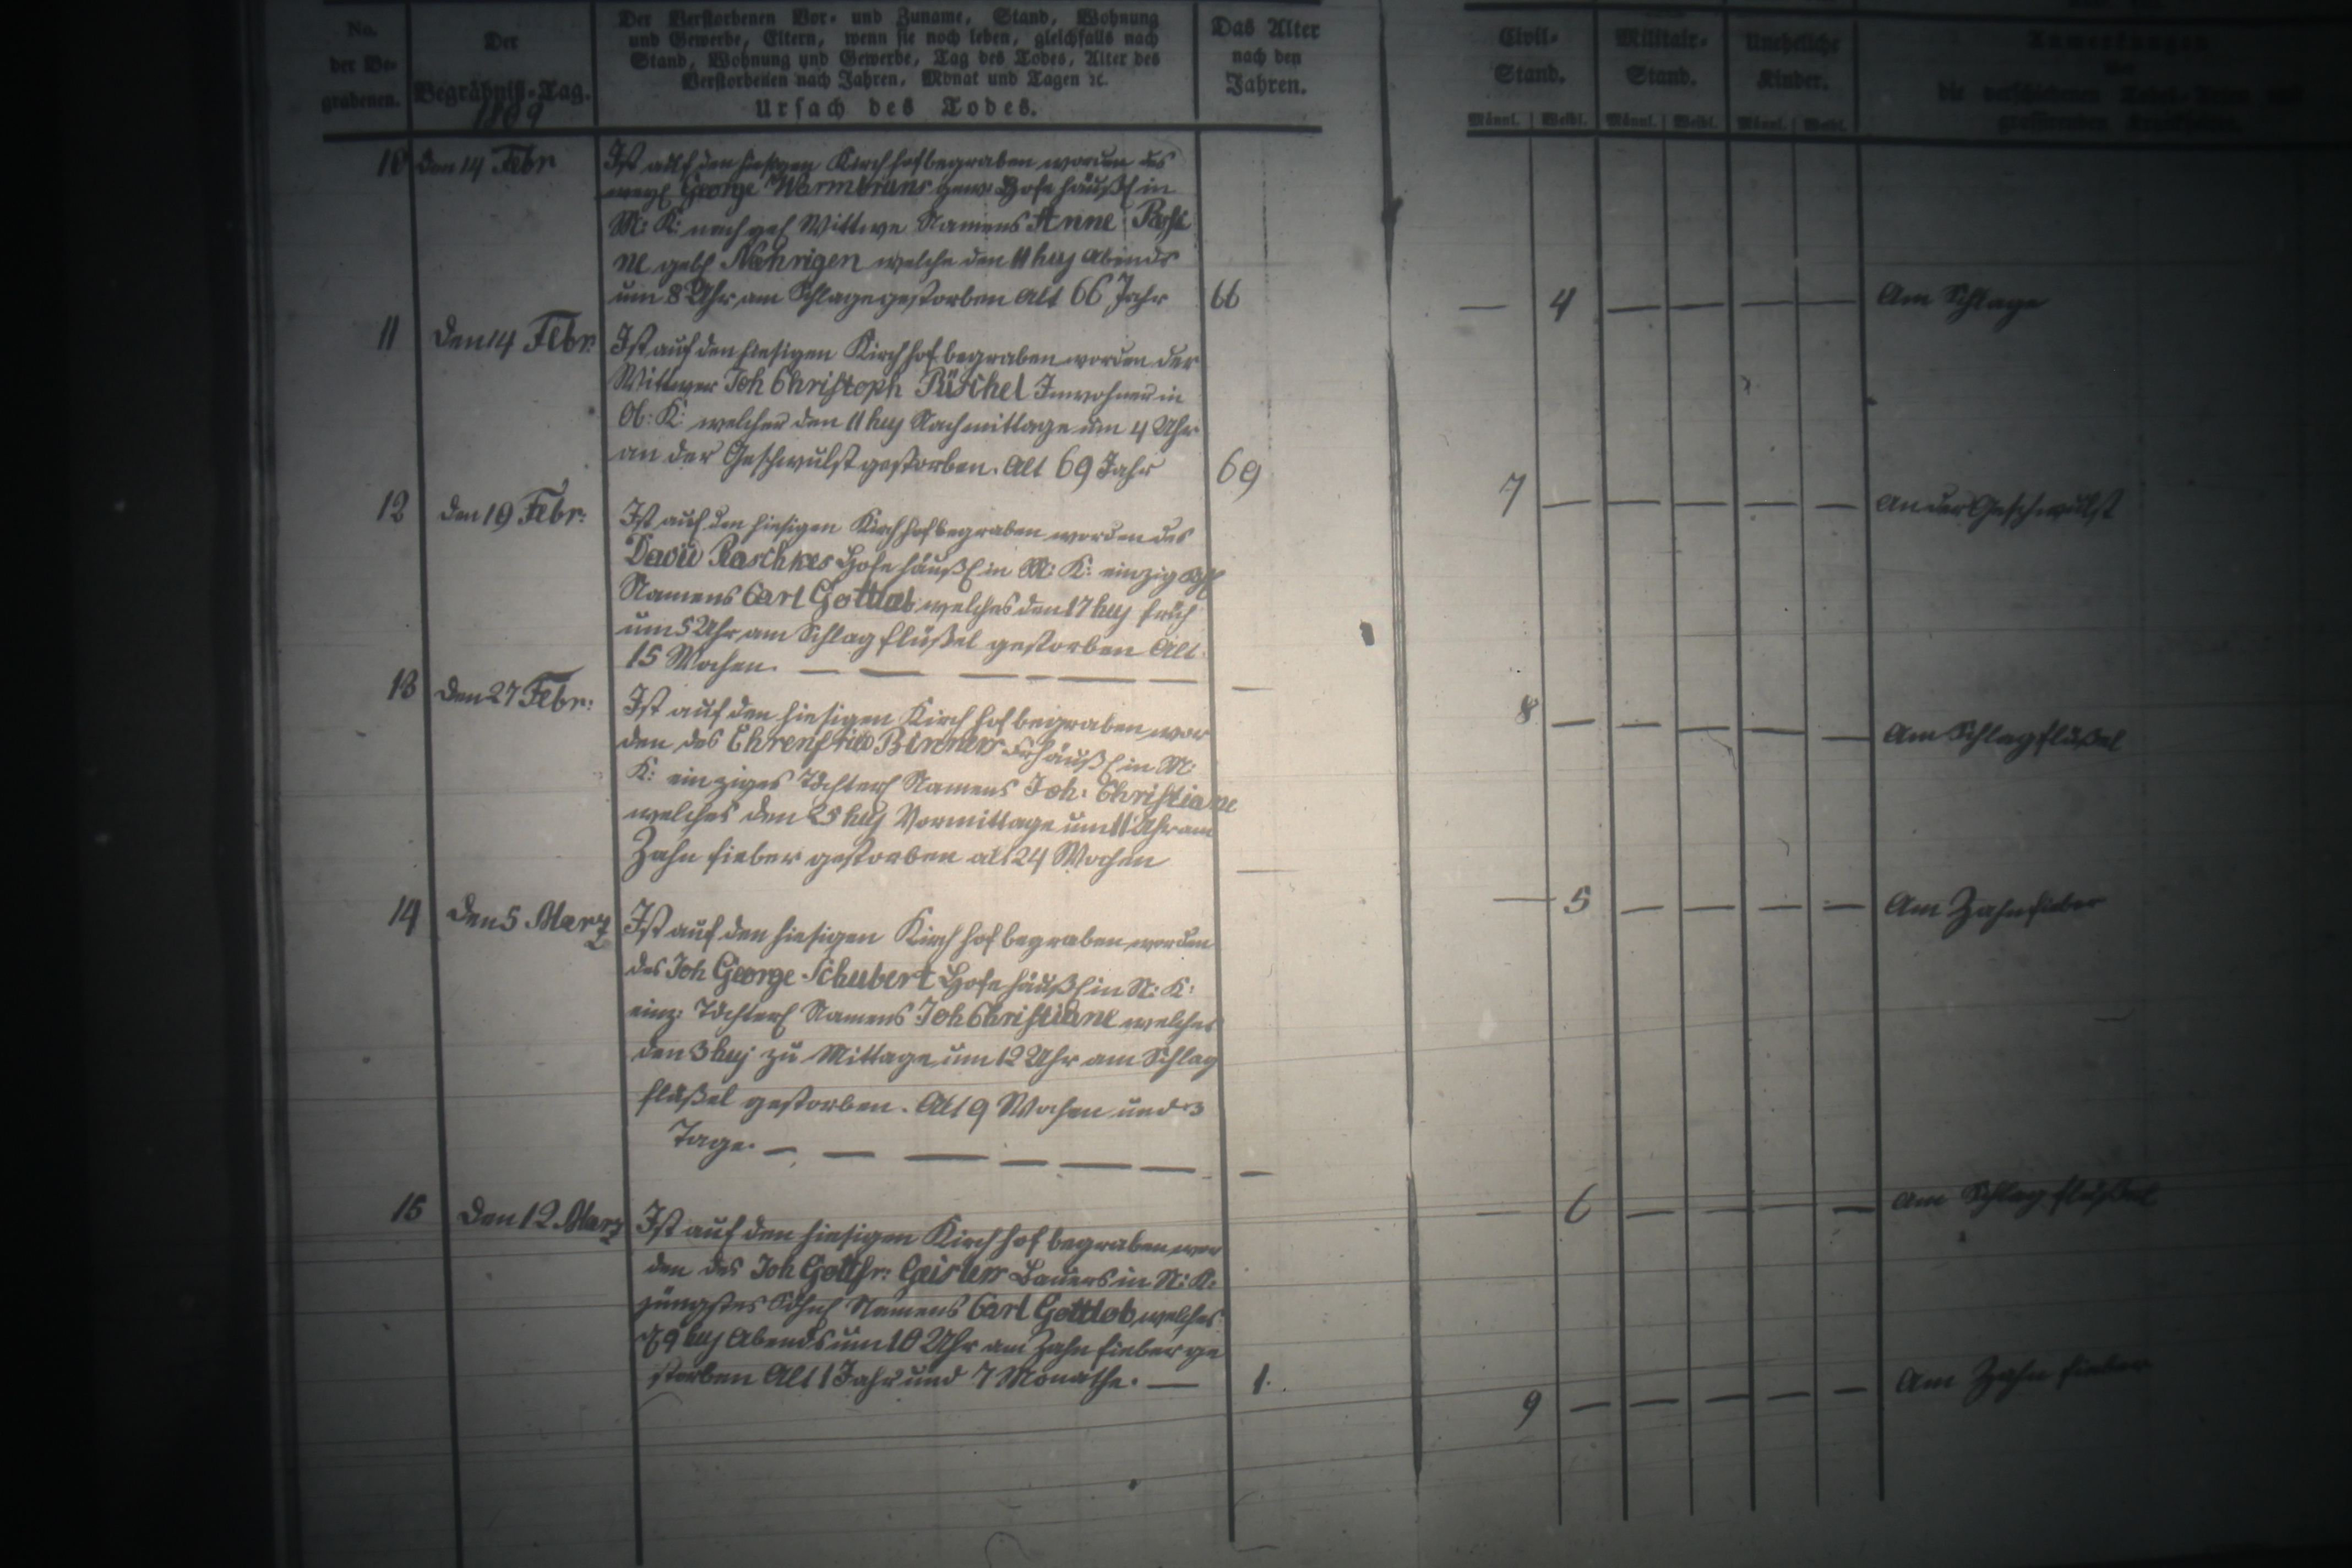 No.
der Be-
grabenen.
Der
Begräbniß-Tag.
1809
Der Verstorbenen Vor- und Zuname, Stand, Wohnung
und Gewerbe, Eltern, wenn sie noch leben, gleichfalls nach
Stand, Wohnung und Gewerbe, Tag des Todes, Alter des
Verstorbenen nach Jahren, Monat und Tagen ꝛc.
Ursach des Todes.
Das Alter
nach den
Jahren.
Civil-
Stand.
Militair-
Stand.
Uneheliche
Kinder.
Anmerkungen
über
die verschiedenen Todes-Arten und
grassirenden Krankheiten.
Männl. Weibl. Männl. Weibl. Männl. Weibl.
10 den 14 Febr
Ist auf den hiesigen Kirchhof begraben worden des
weyl George Warmbruns gew. Hofehäußl in
M: K: nachgel Wittwe Namens Anne Rosi
ne gebl Nährigen welche den 11 huj Abends
um 8 Uhr am Schlage gestorben Alt 66 Jahr
66
— 4 — — — — Am Schlage
11 den 14 Febr.
Ist auf den hiesigen Kirchhof begraben worden der
Wittwer Joh Christoph Püschel Inwohner in
Ob: K: welcher den 11 huj Nachmittage um 4 Uhr
an der Geschwulst gestorben. Alt 69 Jahr
69
7 — — — — — An der Geschwulst
12 den 19 Febr:
Ist auf den hiesigen Kirchhof begraben worden des
David Raschkes Hofehäußl in M: K: einzig
Namens Carl Gottlob welches den 17 huj früh
um 5 Uhr am Schlagflüßel gestorben Alt
15 Wochen. — — — — — —
—
8 — — — — — Am Schlagflüßel
13 den 27 Febr:
Ist auf den hiesigen Kirchhof begraben wor
den des Ehrenfried Binners Frhäußl in M:
K: einziges Töchterl Namens Joh: Christiane
welches den 25 huj Vormittage um 11 Uhr am
Zahnfieber gestorben alt 24 Wochen
—
— 5 — — — — Am Zahnfieber
14 den 5 Marz
Ist auf den hiesigen Kirchhof begraben worden
des Joh George Schubert Hofehäußl in N: K:
einz: Töchterl Namens Joh Christiane welches
den 3 huj zu Mittage um 12 Uhr am Schlag
flüßel gestorben. Alt 9 Wochen und 3
Tage. — — — — — —
—
— 6 — — — — Am Schlagflüßel
15 den 12 Marz
Ist auf den hiesigen Kirchhof begraben wor
den des Joh Gottfr: Geislers Bauers in N: K:
jüngstes Söhnl Namens Carl Gottlob, welches
d 9 huj Abends um 10 Uhr am Zahnfieber ge
storben Alt 1 Jahr und 7 Monathe. —
1.
9 — — — — — Am Zahnfieber